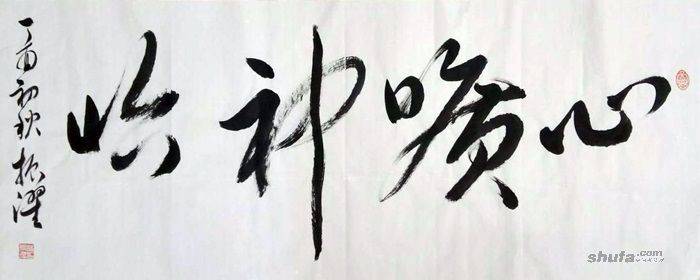 心曠神怡
丁酉初秋 振
shufa.com